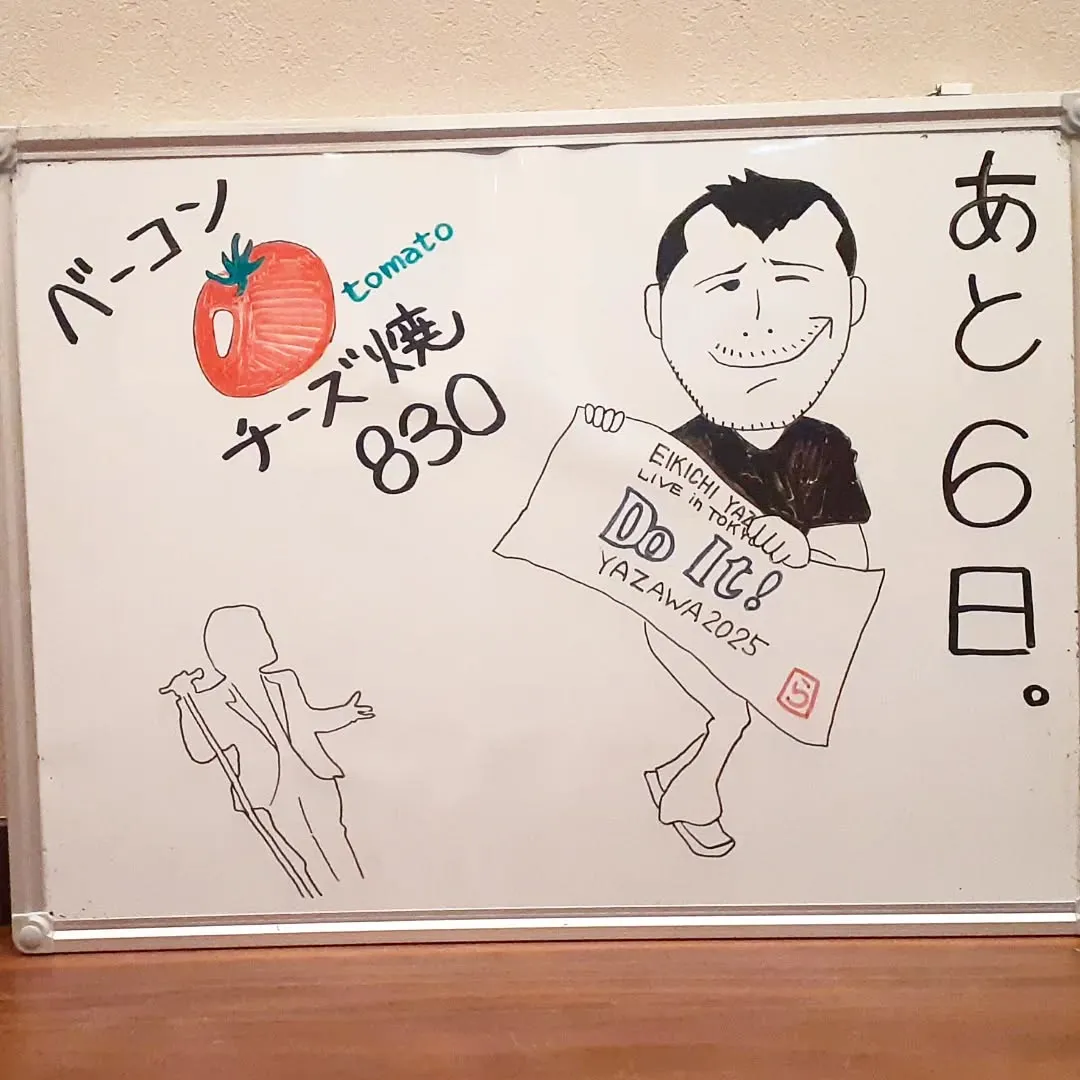 ベーコン
tomato
チーズ焼
830
EIKICHI YAZ
LIVE in TOKYO
Do It!
YAZAWA2025
ら
あと6日。